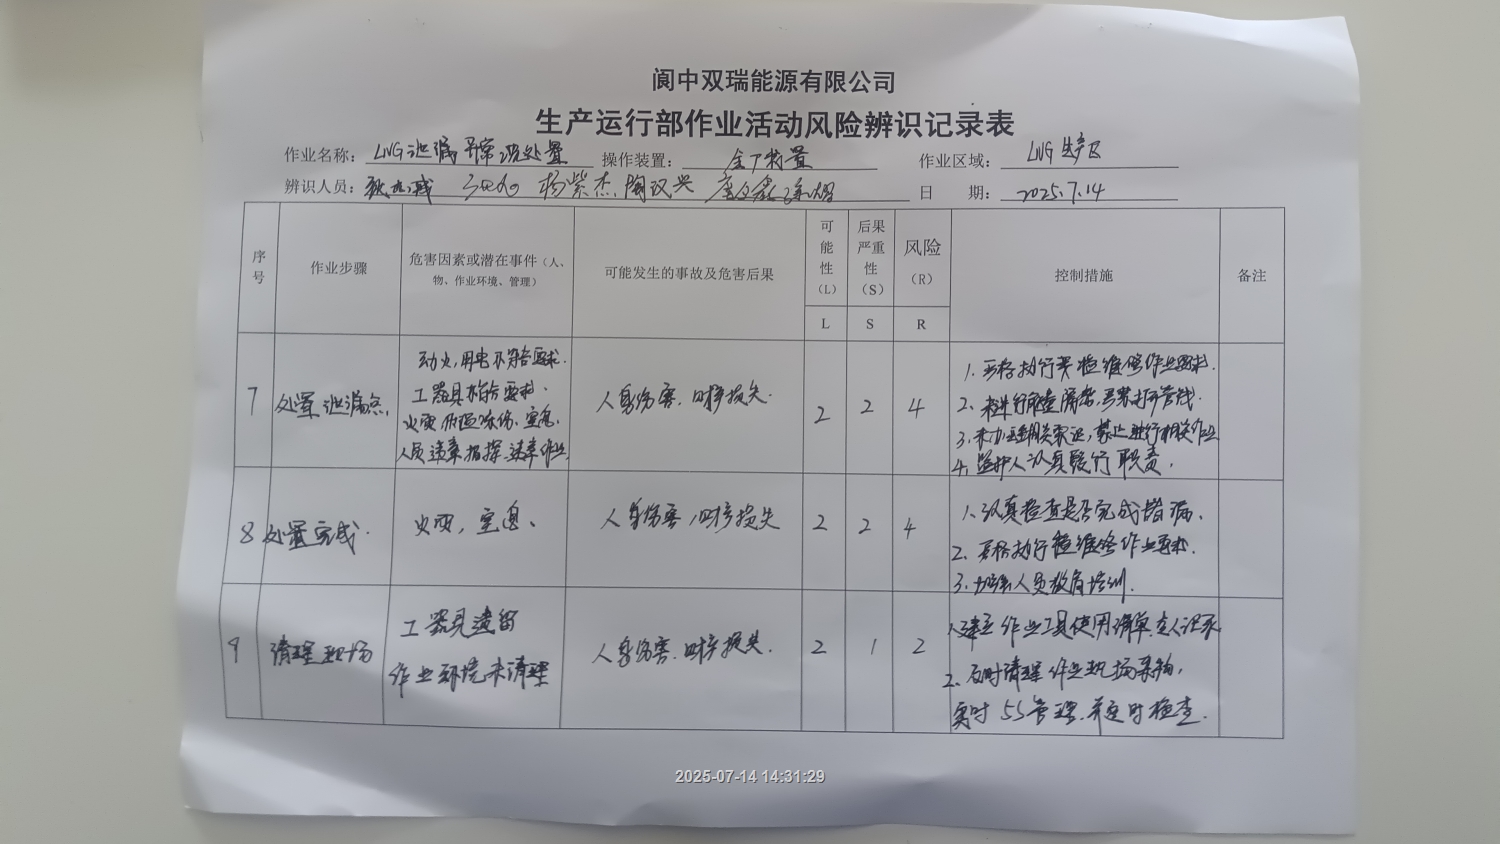 阆中双瑞能源有限公司
生产运行部作业活动风险辨识记录表
作业名称： LNG泄漏异常 处置 操作装置： 全厂装置 作业区域： LNG生产区
辨识人员： 杨紫杰 陶汉兴 日 期： 2025.7.14
序号 作业步骤 危害因素或潜在事件（人、物、作业环境、管理） 可能发生的事故及危害后果 可能性（L） 后果严重性（S） 风险（R） 控制措施 备注
L S R
7 处置泄漏点.
动火,用电不符合要求.
工器具不符合要求.
火灾、低温冻伤、窒息.
人员违章指挥、违章作业
人身伤害、财产损失. 2 2 4
1. 严格执行 检维修作业要求.
2. 未进行 严禁打开管线.
3. 未办理相关票证,禁止进行相关作业
4. 监护人认真履行职责.
8 处置完成. 火灾,窒息、 人身伤害,财产损失 2 2 4
1. 认真检查是否完成堵漏.
2. 严格执行检维修作业要求.
3. 加强人员教育培训.
9 清理现场
工器具遗留
作业环境未清理
人身伤害、财产损失. 2 1 2
1. 建立作业工具使用清单 记录
2. 及时清理作业现场杂物,
实时5S管理, 定时检查.
2025-07-14 14:31:29